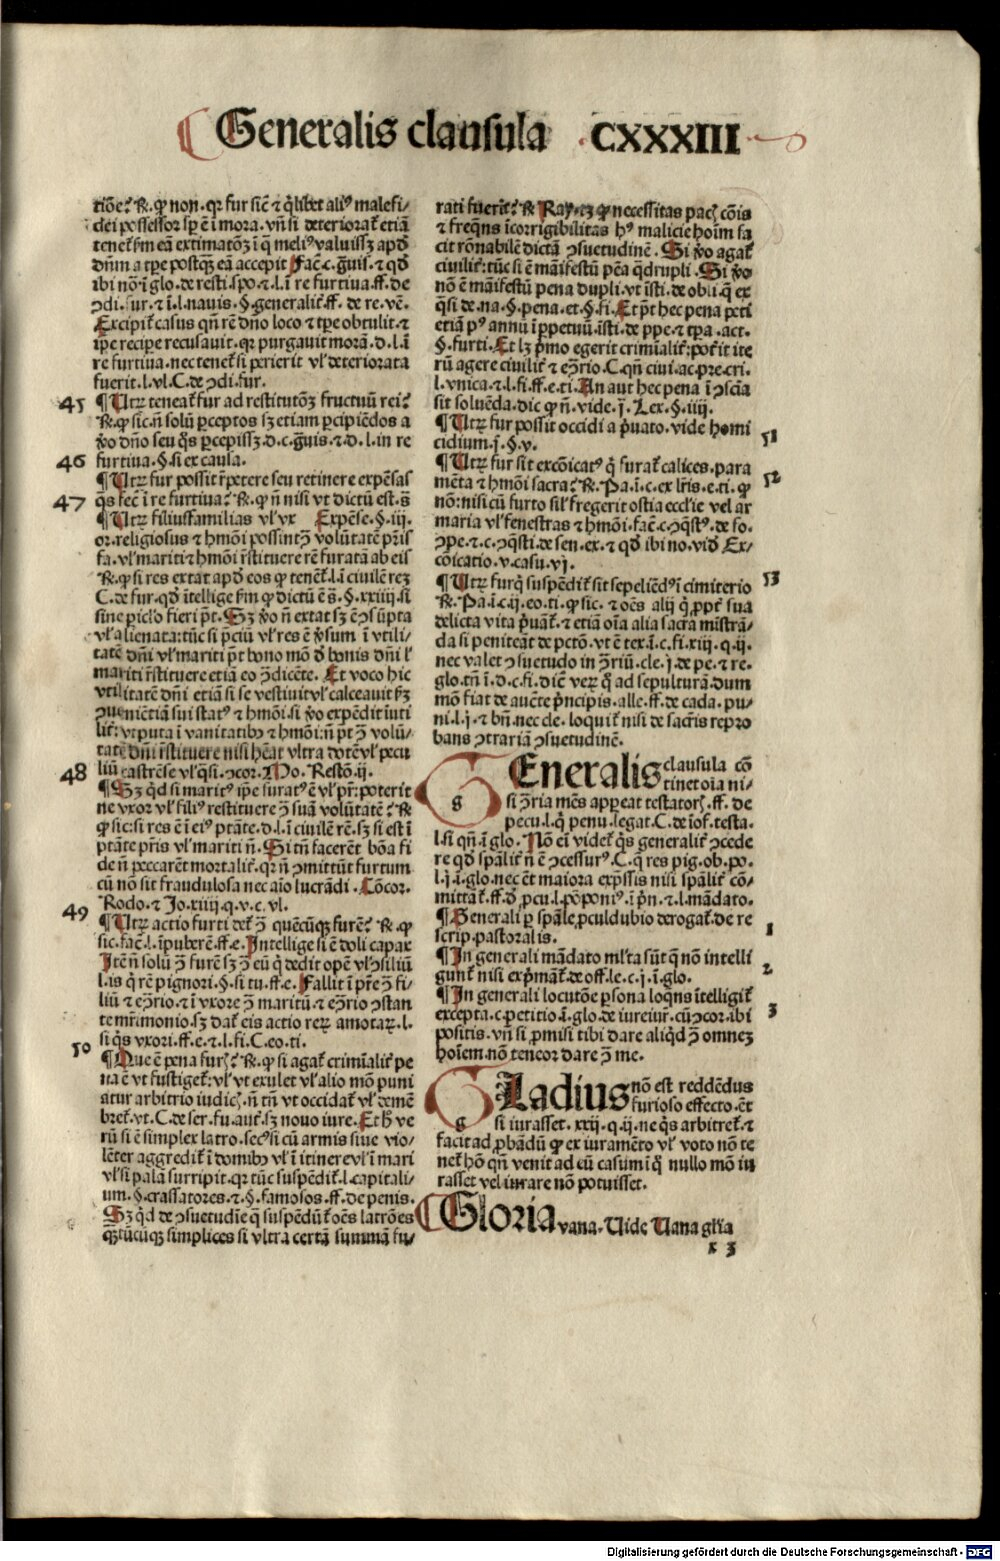 Generalis clausula CXXXIII
tiõe? R. ꝙ non. qꝛ fur sic̃ ⁊ q̃libet aliꝰ malefi/
dei possessor sp̱ ẽ ĩ mora. vñ si deteriorat̃ etiã
tenet̃ ẜm eã extimatõꝫ ĩ q̃ meliꝰ valuissꝫ apđ
dñm a tꝑe postq̃ꝫ eã accepit Fac̃.c. g̃uis. ⁊ qđ
ibi nõ.ĩ glo. de resti. spo. ⁊ l. ĩ re furtiua. ff. de
ꝯdi. fur. ⁊ ĩ.l. nauis. §. generalit̃. ff. de re. vẽ.
Excipit̃ casus qñ rẽ dño loco ⁊ tꝑe obtulit. ⁊
ip̃e reciꝑe recusauit. qꝛ purgauit morã. d. l. ĩ
re furtiua. nec tenet̃ si perierit vl' deteriorata
fuerit. l. vl. C. de ꝯdi. fur.
45 ¶ Utꝝ teneat̃ fur ad restitutõꝫ fructuũ rei?
R. ꝙ sic. ñ solũ ꝑceptos sꝫ etiam ꝑcipiẽdos a
ṽo dño seu q̃s ꝑcepissꝫ. d. c. g̃uis. ⁊ d. l. in re
46 furtiua. §. si ex causa.
¶ Utꝝ fur possit r̃petere seu retinere expẽsas
47 q̃s fec̃ ĩ re furtiua? R. ꝙ ñ nisi vt dictũ est. s̃
¶ Utꝝ filiusfamilias vl' vx Expẽse. §. iij.
or. religiosus ⁊ hmõi possint ꝯ̃ volũtatẽ pr̃is
fa. vl' mariti ⁊ hmõi r̃stituere rẽ furatã ab eis
R. ꝙ si res extat apđ eos ꝙ tenet̃. l. ĩ ciuilẽ reꝫ
C. de fur. qđ ĩtellige ẜm ꝙ dictũ ẽ s̃. §. xxiiij. si
sine pic̃lo fieri p̃t. Sꝫ ṽo ñ extat sꝫ ẽ ꝯsũpta
vl' alienata: tũc si p̃ciũ vl' res ẽ ṽsum ĩ vtili/
tatẽ dñi vl' mariti p̃t bono mõ đ bonis dñi l'
mariti r̃stituere etiã eo ꝯ̃dicẽte. Et voco hic
vtilitatẽ dñi etiã si se vestiuit vl' calceauit ẜꝫ
ꝯueniẽtiã sui statꝰ ⁊ hmõi. si ṽo expẽdit ĩuti
lit̃: vt puta ĩ vanitatibꝰ ⁊ hmõi: ñ p̃t ꝯ̃ volũ/
tatẽ dñi r̃stituere nisi hẽat vltra dotẽ vl' pecu
48 liũ castrẽse vl' q̃si. ꝯcor. Mo. Restõ. ij.
¶ Sꝫ qđ si maritꝰ ip̃e furatꝰ ẽ vl' pr̃: poterit
ne vxor vl' filiꝰ restituere ꝯ̃ suã volũtatẽ? R
ꝙ sic: si res ẽ ĩ eiꝰ ptãte. d. l. ĩ ciuilẽ rẽ. sꝫ si est ĩ
ptãte pr̃is vl' mariti ñ. Si tñ facerẽt bõa fi
de ñ peccarẽt mortalit̃. qꝛ ñ ꝯmittũt furtum
cũ nõ sit fraudulosa nec aĩo lucrãdi. Cõcor.
Rodo. ⁊ Jo. xiiij. q. v. c. vl.
49 ¶ Utꝝ actio furti det̃ ꝯ̃ quẽcũqꝫ furẽ? R. ꝙ
sic. fac̃. l. ĩpuberẽ. ff. e. Intellige si ẽ doli capax
Itẽ ñ solũ ꝯ̃ furẽ sꝫ ꝯ̃ eũ q̃ dedit opẽ vl' ꝯsiliũ
l. is q̃ rẽ pignori. §. si tu. ff. e. Fallit ĩ pr̃e ꝯ̃ fi-
liũ ⁊ eꝯ̃rio. ⁊ ĩ vxore ꝯ̃ maritũ ⁊ eꝯ̃rio ꝯstan
te mr̃imonio. sꝫ dat̃ eis actio reꝝ amotaꝝ. l.
si q̃s vxori. ff. e. ⁊ l. fi. C. eo. ti.
50 ¶ Que ẽ pena furꝭ? R. ꝙ si agat̃ crimĩalit̃ pe
na ẽ vt fustiget̃: vl' vt exulet vl' alio mõ puni
atur arbitrio iudicꝭ. ñ tñ vt occidat̃ vl' demẽ
bret̃. vt. C. de ser. fu. aut̃. sꝫ nouo iure. Et ħ ve
rũ si ẽ simplex latro. secꝰ si cũ armis siue vio/
lẽter aggredit̃ ĩ domibꝰ vl' ĩ itinere vl' ĩ mari
vl' si palã surripit. qꝛ tũc suspẽdit̃. l. capitali/
um. §. crassatores. ⁊. §. famosos. ff. de penis.
Sꝫ qđ de ꝯsuetudĩe q̃ suspẽdũt̃ oẽs latrões
q̃ꝫtũcũqꝫ simplices si vltra certã summã fu/
rati fuerĩt? R Ray. tꝫ ꝙ necessitas pacꝭ cõis
⁊ freq̃ns ĩcorrigibilitas hꝰ malicie hoĩm fa
cit rõnabilẽ dictã ꝯsuetudinẽ. Si ṽo agat̃
ciuilit̃: tũc si ẽ mãifestũ pẽa q̃drupli. Si ṽo
nõ ẽ mãifestũ pena dupli. vt ĩsti. de obli. q̃ ex
q̃si de. na. §. pena. et. §. fi. Et p̃t hec pena peti
etiã pꝰ annũ ĩ ꝑpetuũ. ĩsti. de ꝑpe. ⁊ tꝑa. act.
§. furti. Et lꝫ p̃mo egerit crimĩalit̃: pot̃it ite
rũ agere ciuilit̃ ⁊ eꝯ̃rio. C. qñ ciui. ac. pre. cri.
l. vnica. ⁊. l. fi. ff. e. ti. An aut hec pena ĩ ꝯsciã
sit soluẽda. dic ꝙ ñ. vide. j̃. Lex. §. iiij.
51 ¶ Utꝝ fur possit occidi a p̃uato. vide homi
cidium. j̃. §. v.
52 ¶ Utꝝ fur sit excõicatꝰ q̃ furat̃ calices. para
mẽta ⁊ hmõi sacra? R. Pa. ĩ. c. ex lr̃is. e. ti. ꝙ
nõ: nisi cũ furto sil' fregerit ostia eccl'ie vel ar
maria vl' fenestras ⁊ hmõi. fac̃. c. ꝯq̃stꝰ. de fo.
ꝯpe. ⁊. c. ꝯq̃sti. de sen. ex. ⁊ qđ ibi no. viđ Ex/
cõicatio. v. casu. vj.
53 ¶ Utꝝ fur q̃ suspẽdit̃ sit sepeliẽdꝰ ĩ cimiterio
R. Pa. ĩ. c. ij. eo. ti. ꝙ sic. ⁊ oẽs alij q̃ ꝓpt̃ sua
delicta vita p̃uãt̃. ⁊ etiã oĩa alia sacra mĩstrã/
da si peniteãt de pctõ. vt ẽ tex. ĩ. c. fi. xiij. q. ij.
nec valet ꝯsuetudo in ꝯ̃riũ. cle. j. de pe. ⁊ re.
glo. tñ ĩ. d. c. fi. dic̃ veꝝ q̃ ad sepulturã. dum
mõ fiat de aucte p̃ncipis. alle. ff. de cada. pu/
ni. l. j. ⁊ bñ. nec cle. loquit̃ nisi de sacr̃is repro
bans ꝯtrariã ꝯsuetudinẽ.
g GEneralis clausula cõ
tinet oĩa ni/
si ꝯ̃ria mẽs appeat testatorꝭ. ff. de
pecu. l. q̃ penu. legat. C. de ĩof. testa.
l. si qñ. ĩ glo. Nõ eĩ videt̃ q̃s generalit̃ ꝯcede
re qđ sp̃alit̃ ñ ẽ ꝯcessurꝰ. C. q̃ res pig. ob. po.
l. j. ĩ. glo. nec ẽt maiora exp̃ssis nisi sp̃alit̃ cõ/
mittat̃. ff. đ ꝓcu. l. põponiꝰ. ĩ p̃n. ⁊ l. mãdato.
1 ¶ Generali ꝑ sp̃ale ꝓculdubio derogat̃. de re
scrip. pastoralis.
2 ¶ In generali mãdato ml'ta sũt q̃ nõ intelli
gunt̃ nisi exp̃mãt̃. de off. le. c. j. ĩ. glo.
3 ¶ In generali locutõe ꝑsona loq̃ns ĩtelligit̃
excepta. c. petitio ĩ. glo. de iureiur̃. cũ ꝯcor. ibi
positis. vñ si ꝓmisi tibi dare aliq̃d ꝯ̃ omnez
hoĩem. nõ teneor dare ꝯ̃ me.
g GLadius nõ est reddẽdus
furioso effecto. ẽt
si iurasset. xxij. q. ij. ne q̃s arbitret̃. ⁊
facit ad ꝓbãdũ ꝙ ex iuramẽto vl' voto nõ te
net̃ hõ qñ venit ad eũ casum ĩ q̃ nullo mõ iu
rasset vel iurare nõ potuisset.
Gloria vana. Vide Vana gl'ia
x 3
Digitalisierung gefördert durch die Deutsche Forschungsgemeinschaft - DFG